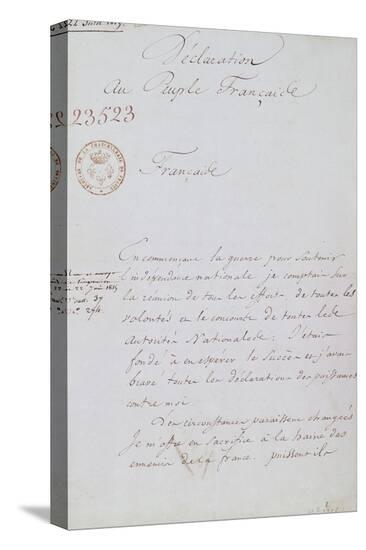 Déclaration
Au Peuple Française
23523
Française
En commençant la guerre pour soutenir
l'indépendance nationale je comptais sur
la réunion de tous les efforts, de toutes les
volontés et le concours de toutes les
autorités Nationales : J'étais
fondé à en espérer le succès et j'avais
bravé toutes les déclarations des puissances
contre moi.
Des circonstances paraissent changées
Je m'offre en sacrifice à la haine des
ennemis de la france. puissent ils